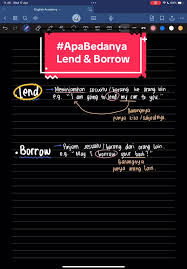 English Academy
#ApaBedanya
Lend & Borrow
Lend → Meminjamkan sesuatu / barang ke orang lain.
e.g. "I am going to lend my car to you."
Barangnya
punya kita / subjeknya.
• Borrow → Pinjam sesuatu / barang dari orang lain.
e.g. "May I borrow your book?"
Barangnya
punya orang lain.